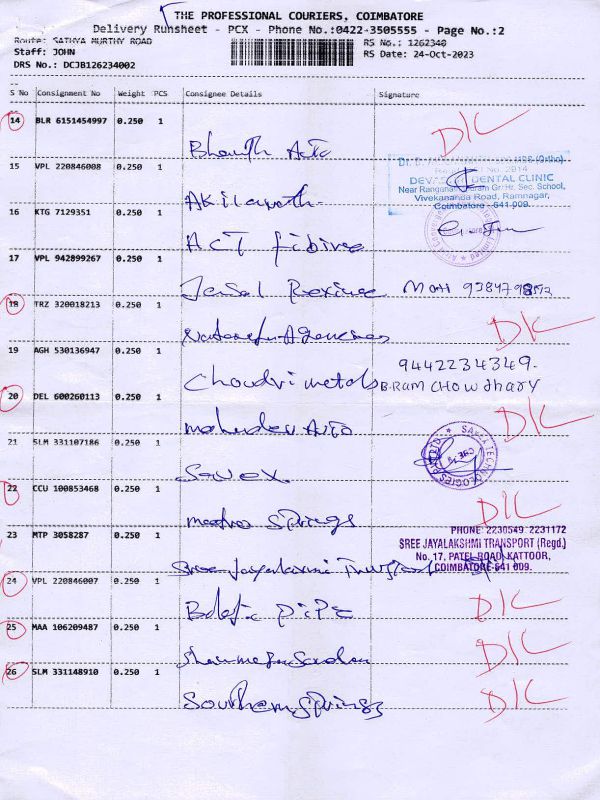 THE PROFESSIONAL COURIERS, COIMBATORE
Delivery Runsheet - PCX - Phone No.:0422-3505555 - Page No.:2
Route: SATHYA MURTHY ROAD
RS No.: 1262340
Staff: JOHN
RS Date: 24-Oct-2023
DRS No.: DCJB126234002
S No Consignment No Weight PCS Consignee Details Signature
14 BLR 6151454997 0.250 1 D/C
Bharath Auto
15 VPL 220846008 0.250 1
DENTAL CLINIC
Near Ranganayakiram Gr. Hr. Sec. School,
Vivekananda Road, Ramnagar,
Coimbatore - 641 009.
16 KTG 7129351 0.250 1
ACT
17 VPL 942899267 0.250 1
Jaisal Rexine
18 TRZ 320018213 0.250 1 D/C
Agencies
19 AGH 530136947 0.250 1
Choudri metals
9442234349.
B.RAM CHOWDHARY
20 DEL 600260113 0.250 1 D/C
mahadev Auto
21 SLM 331107186 0.250 1
SAVEX TECHNOLOGIES
Savex
22 CCU 100853468 0.250 1 D/C
Springs
23 MTP 3058287 0.250 1
PHONE: 2230549 2231172
SREE JAYALAKSHMI TRANSPORT (Regd.)
No. 17, PATEL ROAD, KATTOOR,
COIMBATORE-641 009.
24 VPL 220846007 0.250 1 D/C
25 MAA 106209487 0.250 1 D/C
26 SLM 331148910 0.250 1 D/C
Southern Springs